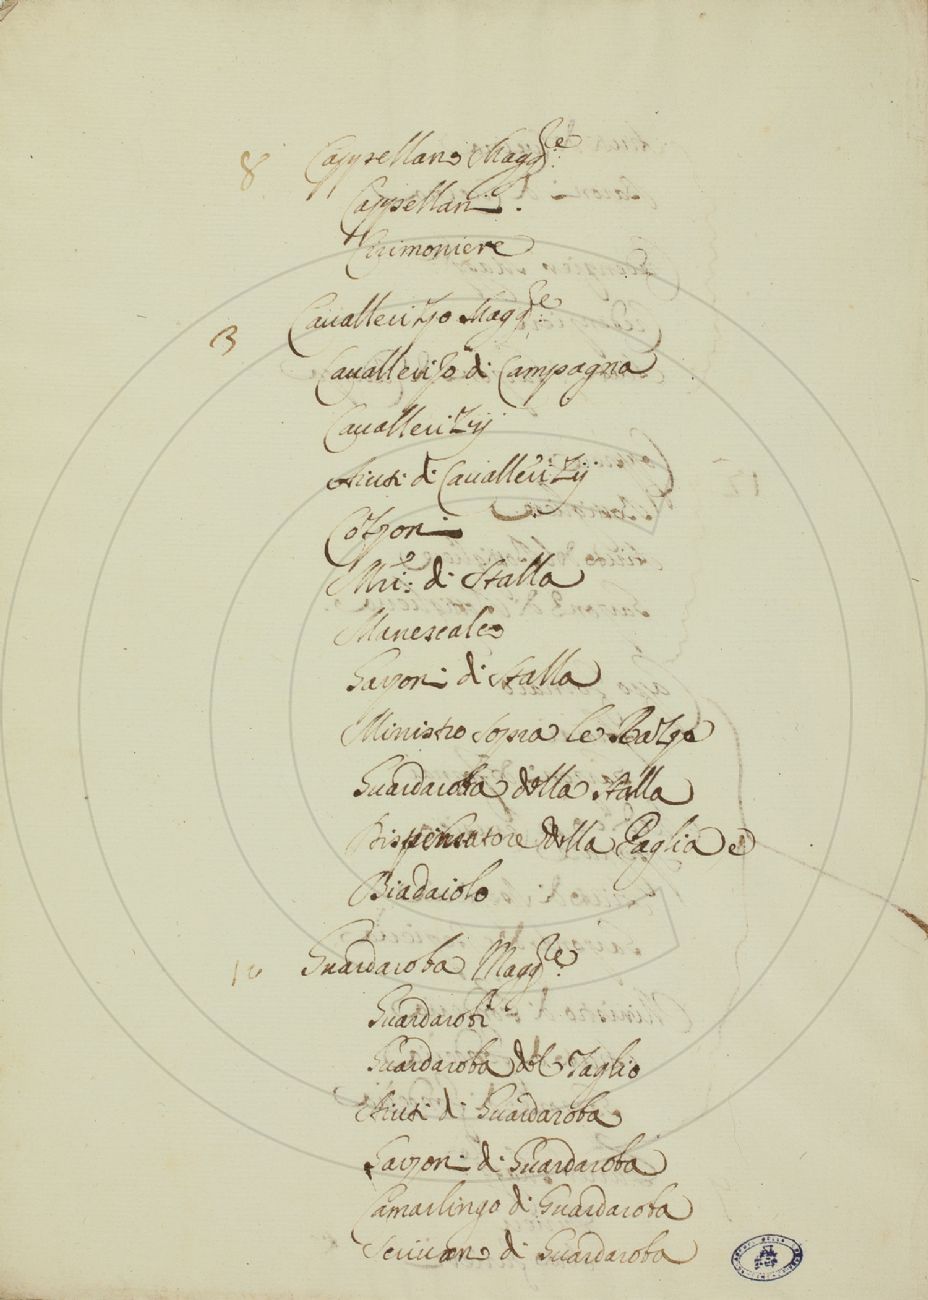 8 Cappellano Magg.re
Cappellani.
Cirimoniere
3 Cauallerizzo Magg.re
Cauallerizzo di Campagna
Cauallerizzij
Aiuti di Cauallerizzij
Cozzoni
Mri. di Stalla
Manescalco
Garzoni di Stalla
Ministro sopra le Razze
Guardaroba della Stalla
Dispensatore della Paglia e
Biadaiolo
10 Guardaroba Magg.re
Guardarobi
Guardaroba del Taglio
Aiuti di Guardaroba
Garzoni di Guardaroba
Camarlingo di Guardaroba
Scriuano di Guardaroba